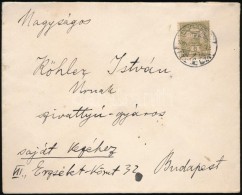 Nagyságos
Köhler István
Úrnak
szivattyú-gyáros
saját kezéhez
VII. Erzsébet-körút 32 Budapest